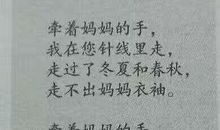 牵着妈妈的手，
我在您针线里走，
走过了冬夏和春秋，
走不出妈妈衣袖。
牵着妈妈的手，